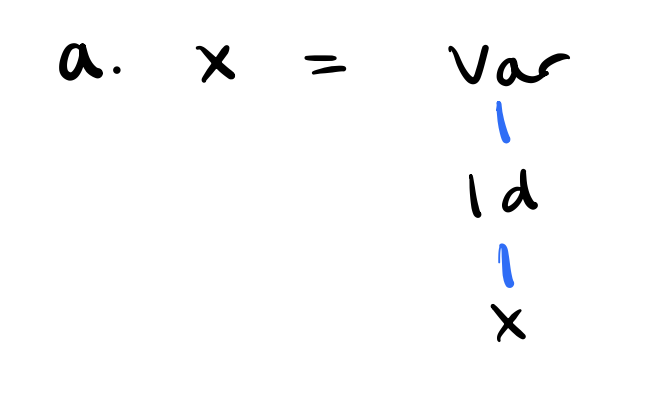 a. x = Var
Id
x